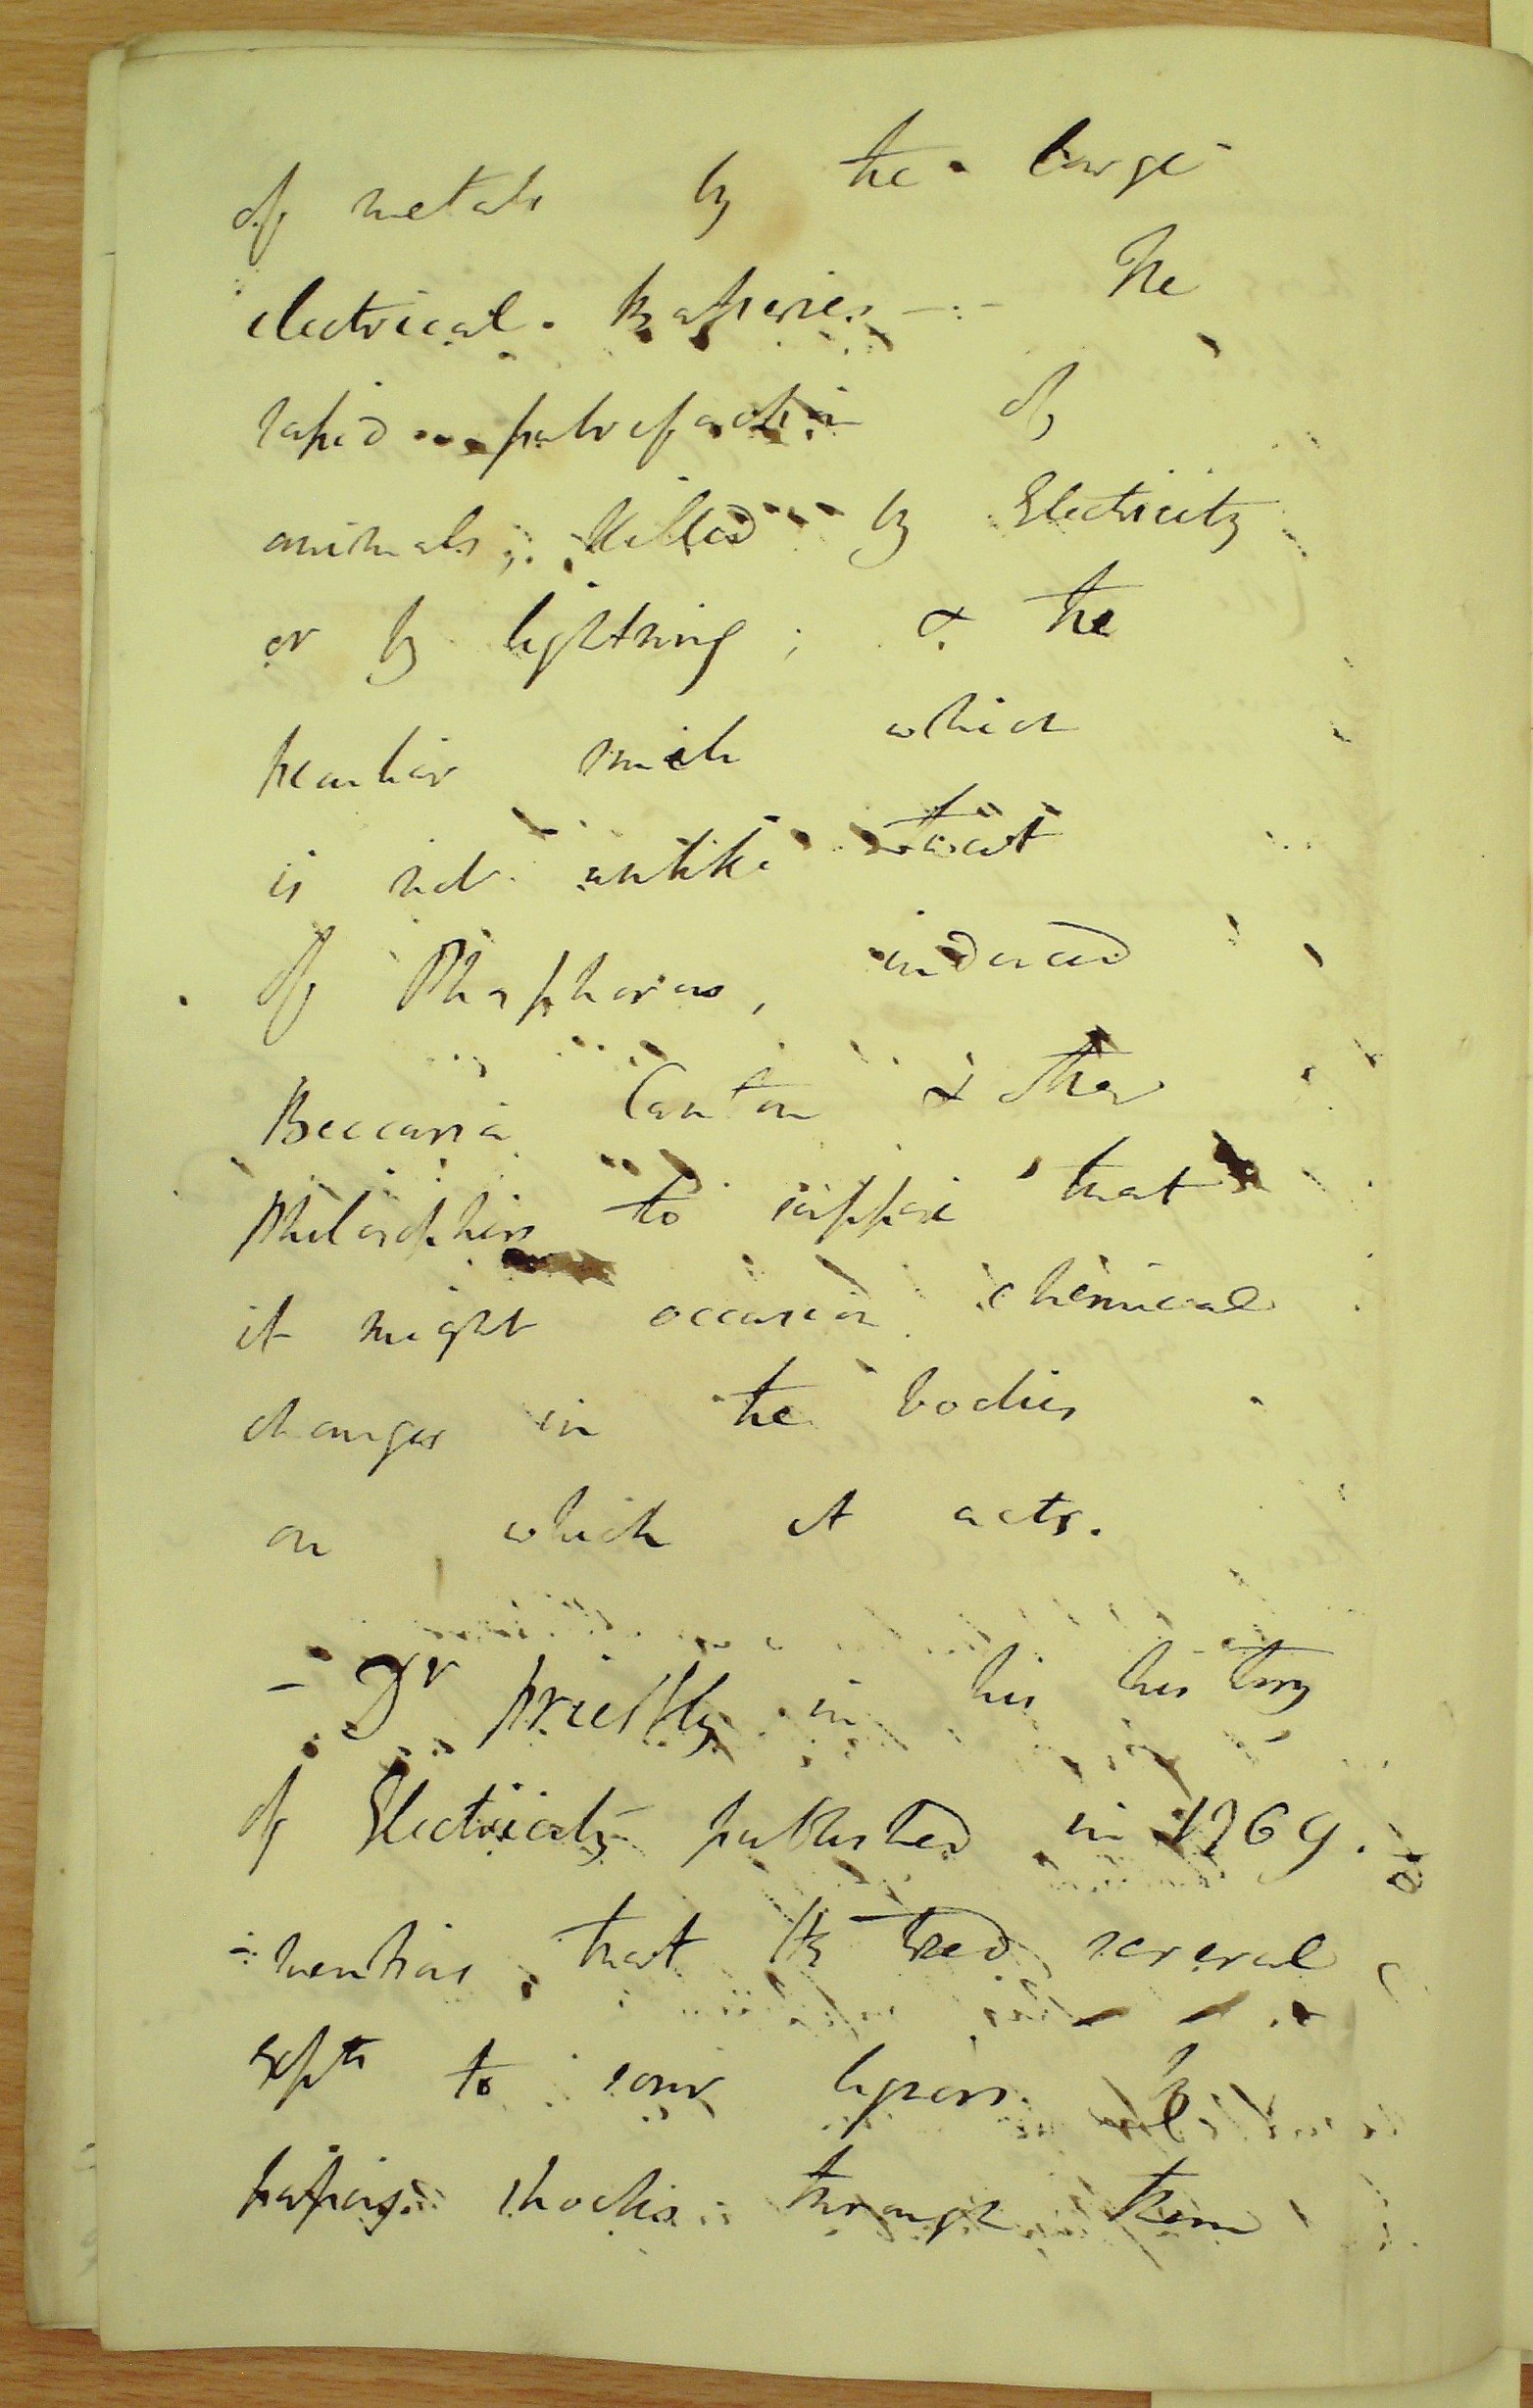 of metals by the large
electrical Batteries -:- The
rapid putrefaction of
animals, killed by Electricity
or by lightning; & the
peculiar smell which
is not unlike that
of Phosphorus, induced
Beccaria Canton & other
Philosophers to suppose that
it might occasion chemical
changes in the bodies
on which it acts.
- Dr Priestly in his history
of Electricity published in 1769.
mentions that he tried several
Expts to sour liquors by
passing shocks through them